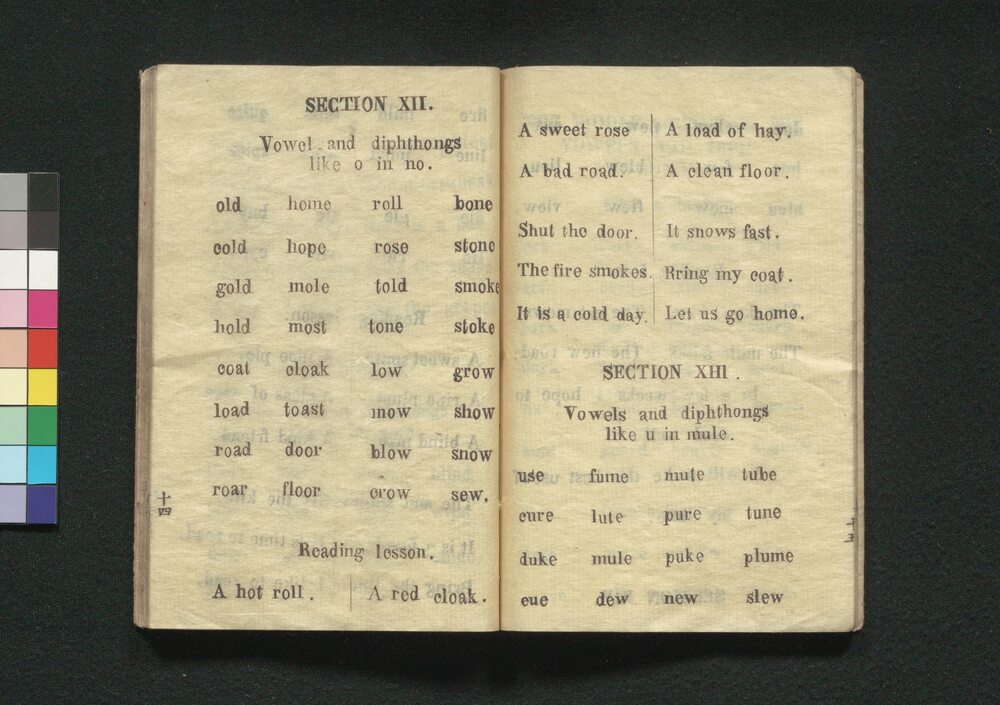 SECTION XII.
Vowel and diphthongs
like o in no.
old home roll bone
cold hope rose stone
gold mole told smoke
hold most tone stoke
coat cloak low grow
load toast mow show
road door blow snow
roar floor crow sew.
Reading lesson.
A hot roll. A red cloak.
十四
A sweet rose A load of hay.
A bad road. A clean floor.
Shut the door. It snows fast.
The fire smokes. Bring my coat.
It is a cold day. Let us go home.
SECTION XIII.
Vowels and diphthongs
like u in mule.
use fume mute tube
cure lute pure tune
duke mule puke plume
cue dew new slew